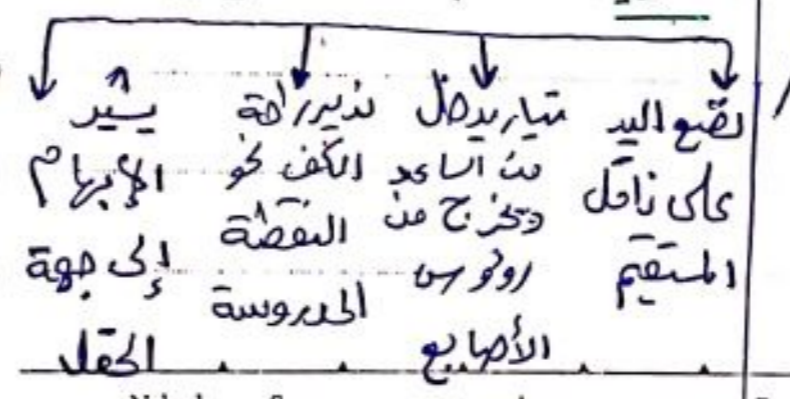 نضع اليد
على ناقل
المستقيم
تيار يدخل
من الساعد
ويخرج من
رؤوس
الأصابع
ندير راحة
الكف نحو
النقطة
المدروسة
يشير
الإبهام
إلى جهة
الحقل